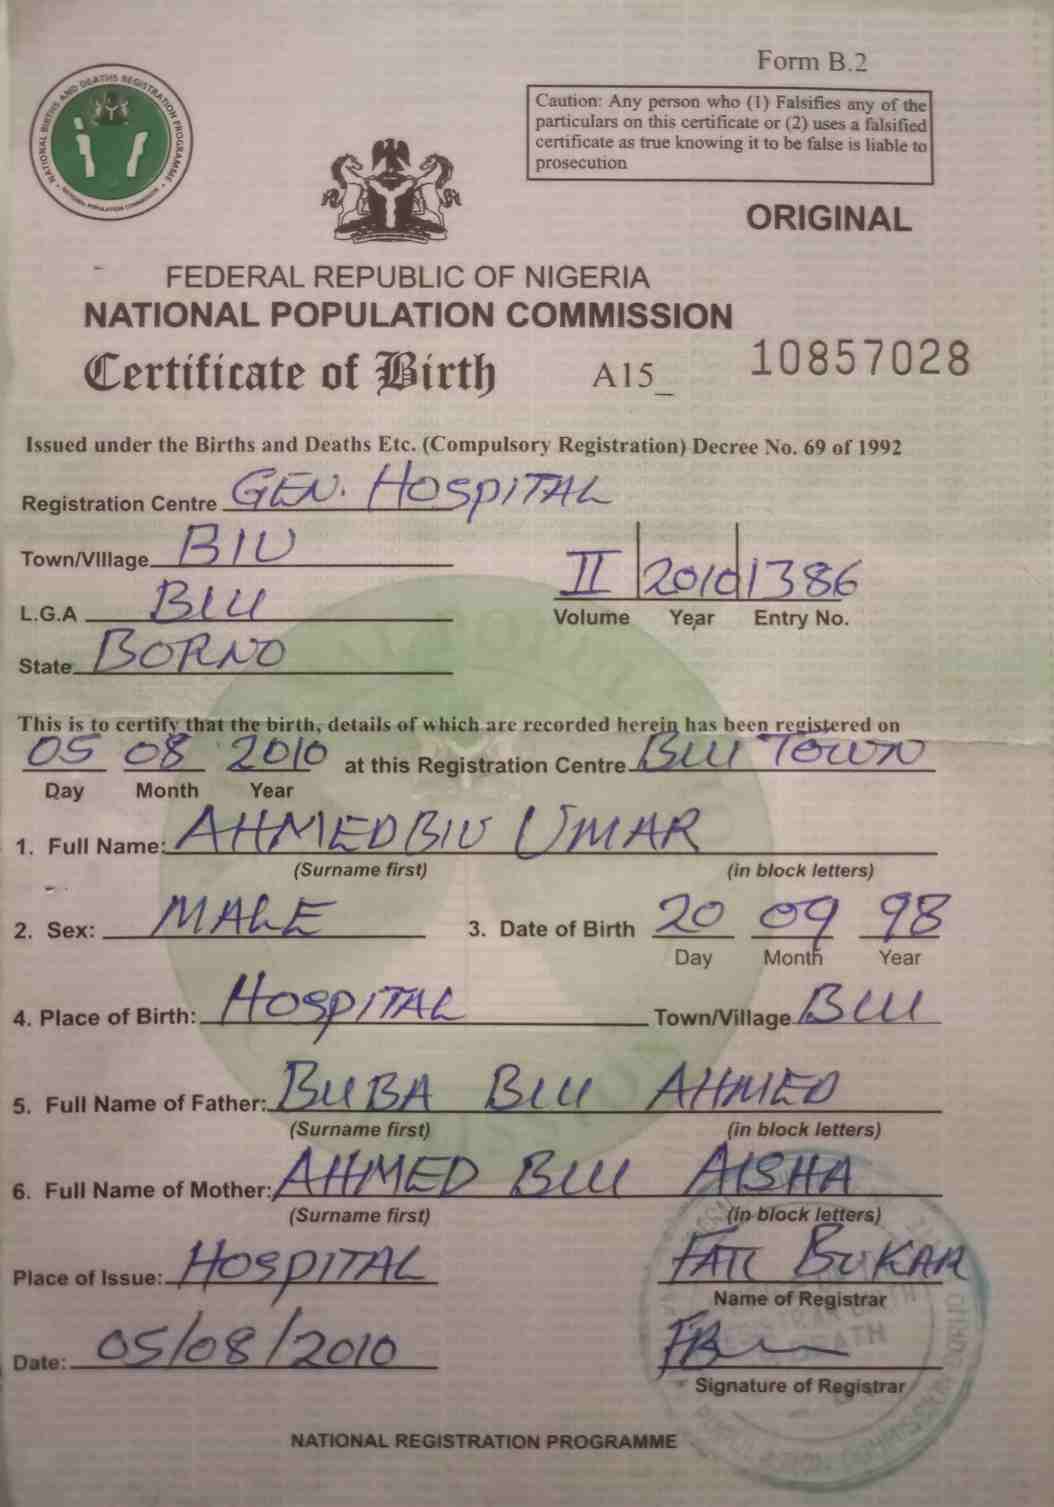 Form B.2
Caution: Any person who (1) Falsifies any of the
particulars on this certificate or (2) uses a falsified
certificate as true knowing it to be false is liable to
prosecution
NATIONAL BIRTHS AND DEATHS REGISTRATION PROGRAMME
NATIONAL POPULATION COMMISSION
ORIGINAL
FEDERAL REPUBLIC OF NIGERIA
NATIONAL POPULATION COMMISSION
Certificate of Birth A15_ 10857028
Issued under the Births and Deaths Etc. (Compulsory Registration) Decree No. 69 of 1992
Registration Centre GEN. HOSPITAL
Town/Village BIU
II 2010 1386
L.G.A BIU
Volume Year Entry No.
State BORNO
This is to certify that the birth, details of which are recorded herein has been registered on
05 08 2010 at this Registration Centre BIU TOWN
Day Month Year
1. Full Name: AHMED BIU UMAR
(Surname first) (in block letters)
2. Sex: MALE 3. Date of Birth 20 09 98
Day Month Year
4. Place of Birth: HOSPITAL Town/Village BIU
5. Full Name of Father: BUBA BIU AHMED
(Surname first) (in block letters)
6. Full Name of Mother: AHMED BIU AISHA
(Surname first) (in block letters)
Place of Issue: HOSPITAL FATI BUKAR
Name of Registrar
Date: 05/08/2010
Signature of Registrar
NATIONAL REGISTRATION PROGRAMME